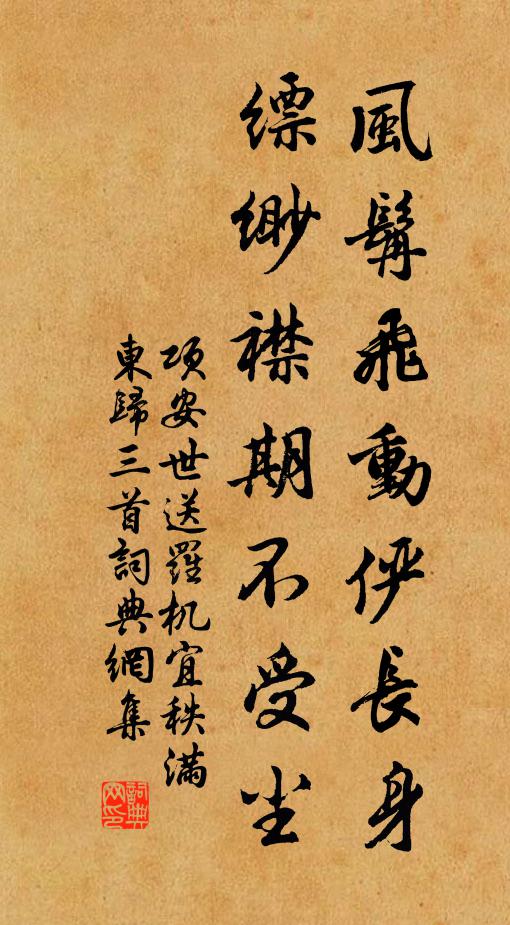 風髯飛動俜長身
縹緲襟期不受尘
項安世送羅机宜秩滿
東歸三首詞典網集
詞典网印